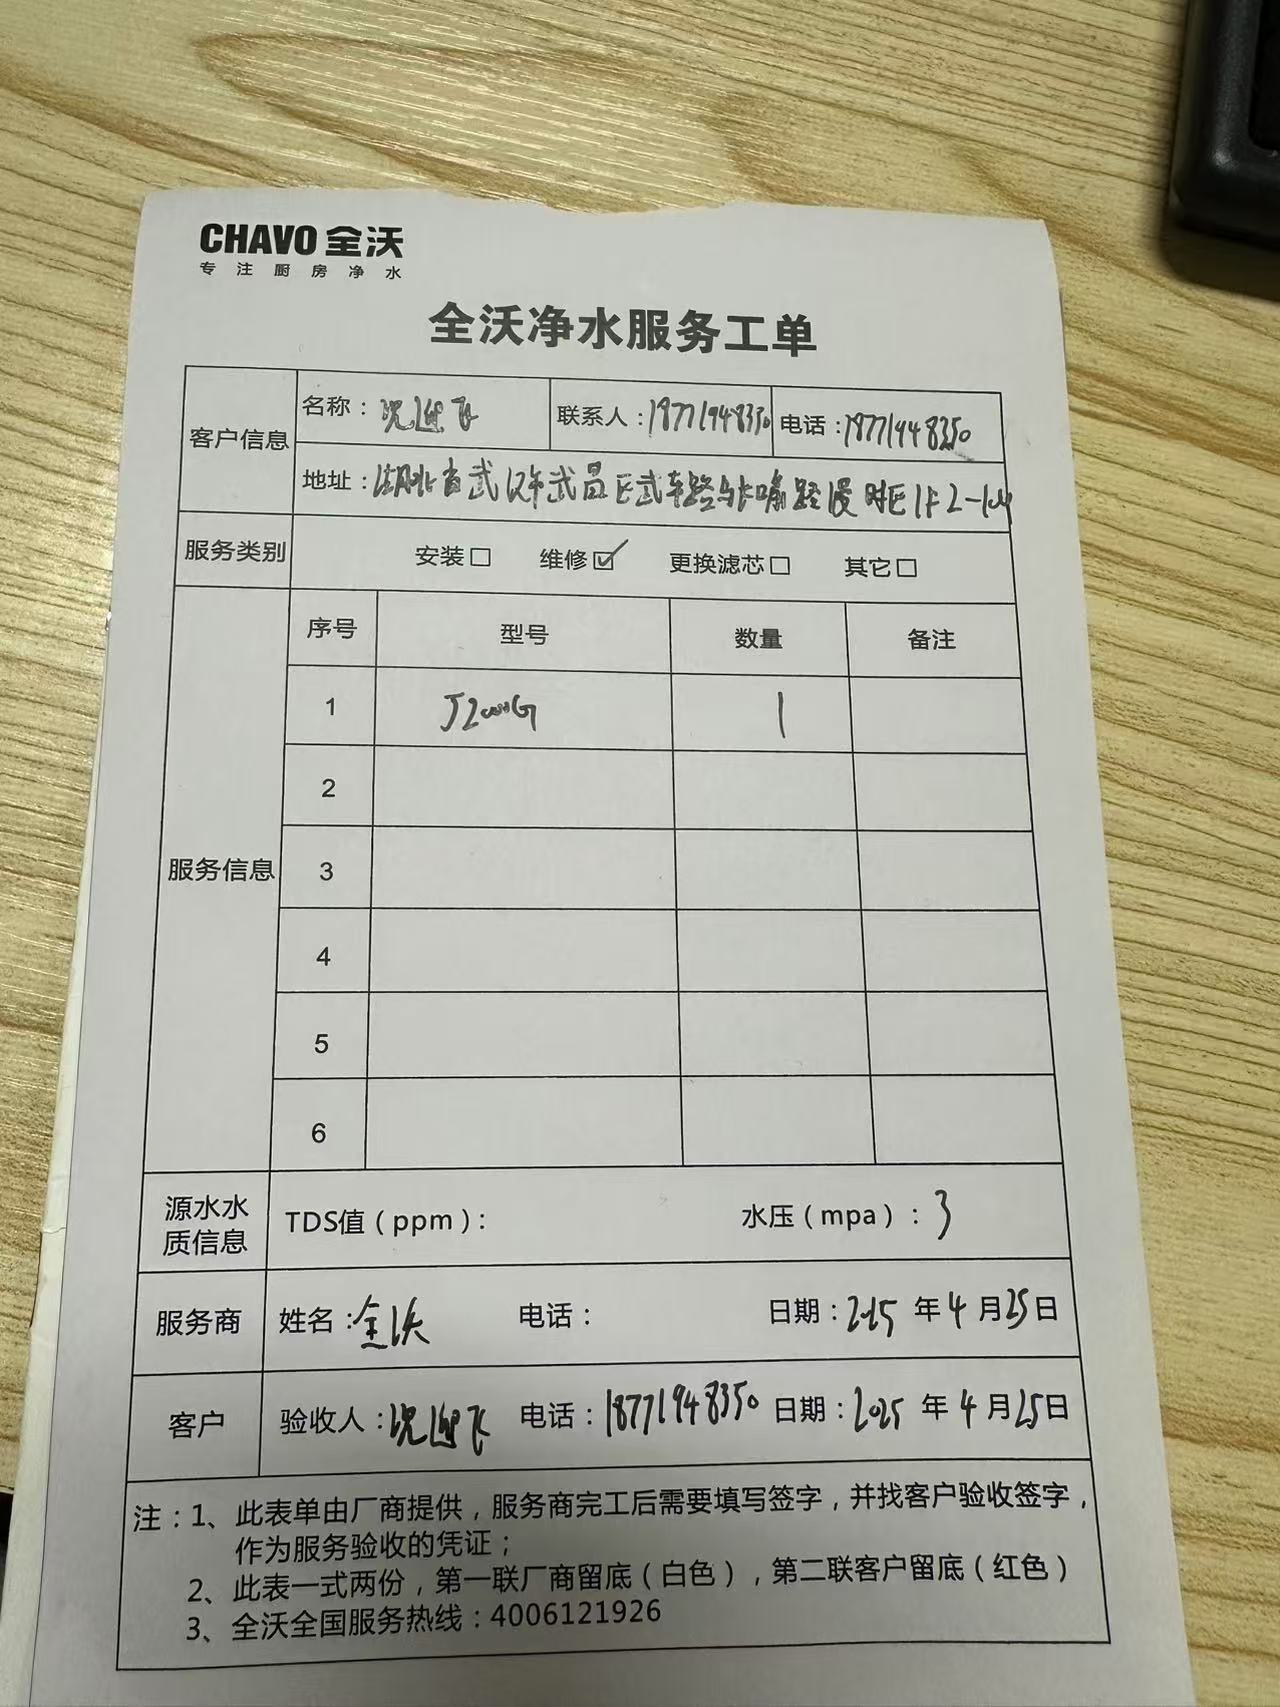 CHAVO 全沃
专注厨房净水
全沃净水服务工单
客户信息 名称： 联系人：18771948350 电话：18771948350
地址：湖北省武汉市武昌区武车路与 路
服务类别 安装□ 维修☑ 更换滤芯□ 其它□
服务信息 序号 型号 数量 备注
1 1
2
3
4
5
6
源水水质信息 TDS值（ppm）： 水压（mpa）：3
服务商 姓名：全沃 电话： 日期：2025 年 4 月 25 日
客户 验收人： 电话：18771948350 日期：2025 年 4 月 25 日
注：1、此表单由厂商提供，服务商完工后需要填写签字，并找客户验收签字，
作为服务验收的凭证；
2、此表一式两份，第一联厂商留底（白色），第二联客户留底（红色）
3、全沃全国服务热线：4006121926